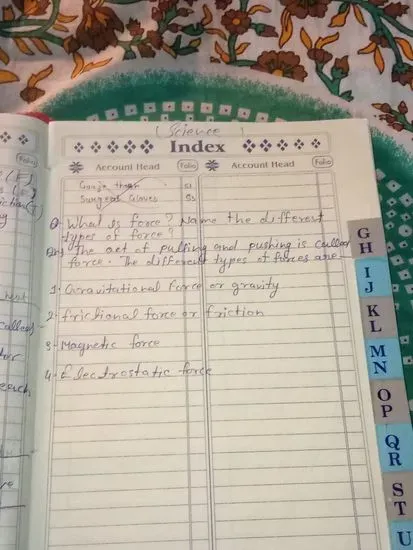 (Science)
Index
Folio
Account Head Folio Account Head Folio
Gauge than 51
Surgest Gloves 53
Q- What is force? Name the different
types of force?
Ans) The act of pulling and pushing is called
force. The different types of forces are-
1- Gravitational force or gravity
2- frictional force or friction
3- Magnetic force
4- Electrostatic force
called
each
re
GH
IJ
KL
MN
OP
QR
ST
U